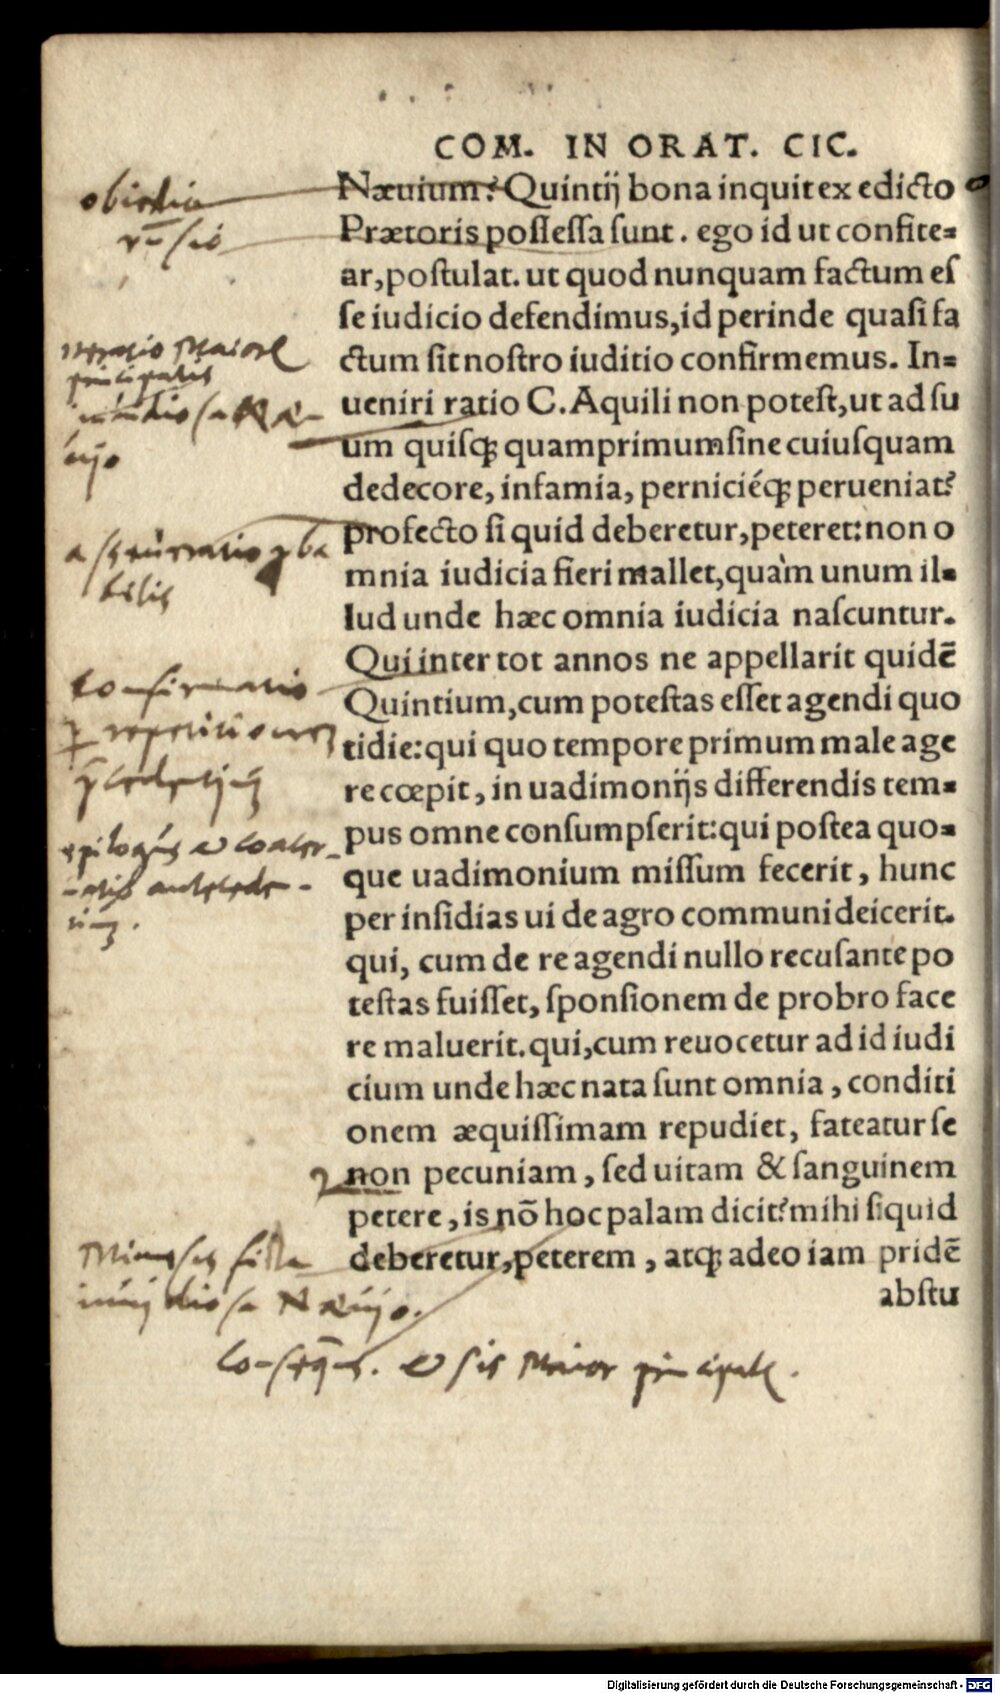 COM. IN ORAT. CIC.
Næuium? Quintij bona inquit ex edicto
Prætoris possessa sunt. ego id ut confite=
ar, postulat. ut quod nunquam factum es
se iudicio defendimus, id perinde quasi fa
ctum sit nostro iuditio confirmemus. In=
ueniri ratio C. Aquili non potest, ut ad su
um quisq; quamprimum sine cuiusquam
dedecore, infamia, perniciéq; perueniat?
profecto si quid deberetur, peteret: non o
mnia iudicia fieri mallet, quàm unum il=
lud unde hæc omnia iudicia nascuntur.
Qui inter tot annos ne appellarit quidē
Quintium, cum potestas esset agendi quo
tidie: qui quo tempore primum male age
re cœpit, in uadimonijs differendis tem=
pus omne consumpserit: qui postea quo=
que uadimonium missum fecerit, hunc
per insidias ui de agro communi deicerit.
qui, cum de re agendi nullo recusante po
testas fuisset, sponsionem de probro face
re maluerit. qui, cum reuocetur ad id iudi
cium unde hæc nata sunt omnia, conditi
onem æquissimam repudiet, fateatur se
non pecuniam, sed uitam & sanguinem
petere, is nō hoc palam dicit? mihi si quid
deberetur, peterem, atq; adeo iam pridē
abstu
Maiore
principalis
Næ-
uijo
ratio
bilis
Confirmatio
epilogus
Næuijo.
Maior principale.
Digitalisierung gefördert durch die Deutsche Forschungsgemeinschaft - DFG